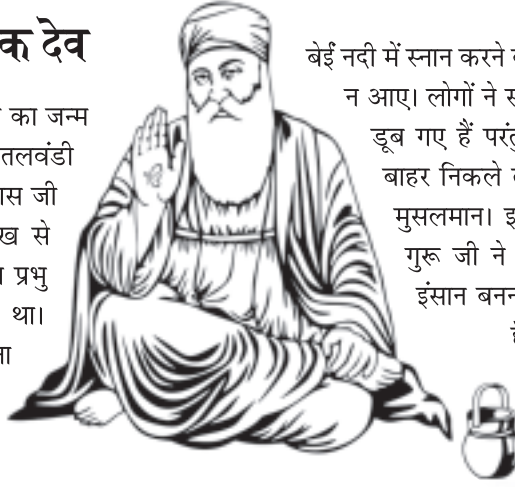 क देव
का जन्म
तलवंडी
जी
से
प्रभु
था।
बेईं नदी में स्नान करने
न आए। लोगों ने
डूब गए हैं परंतु
बाहर निकले
मुसलमान।
गुरू जी ने
इंसान बनन